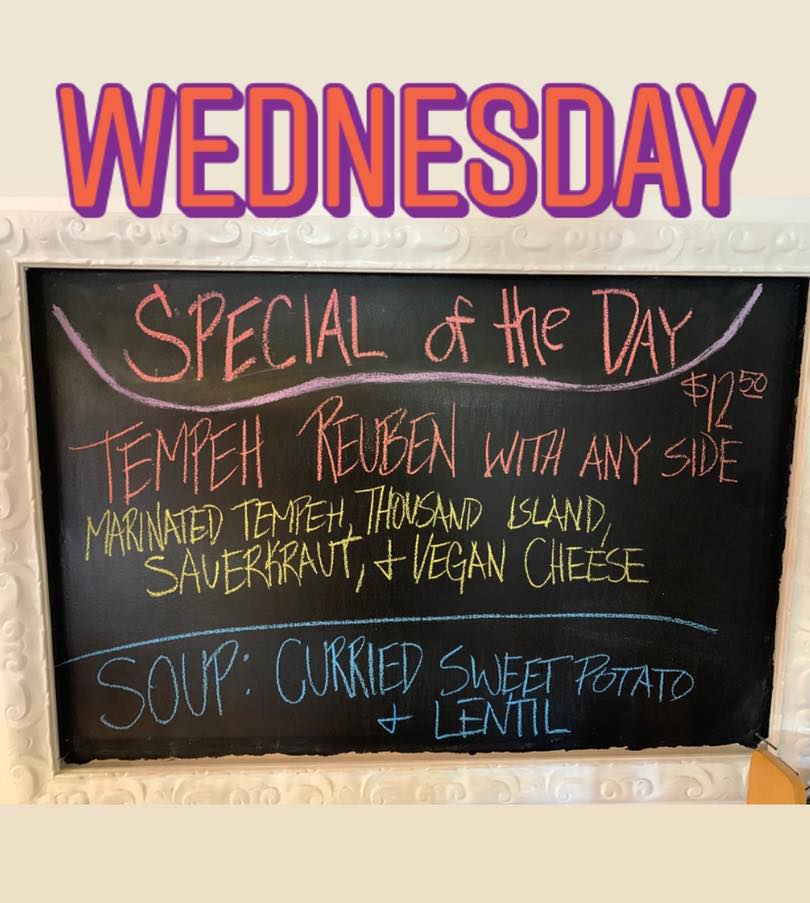 WEDNESDAY
SPECIAL of the DAY
$12 50
TEMPEH REUBEN WITH ANY SIDE
MARINATED TEMPEH, THOUSAND ISLAND,
SAUERKRAUT, + VEGAN CHEESE
SOUP: CURRIED SWEET POTATO
+ LENTIL